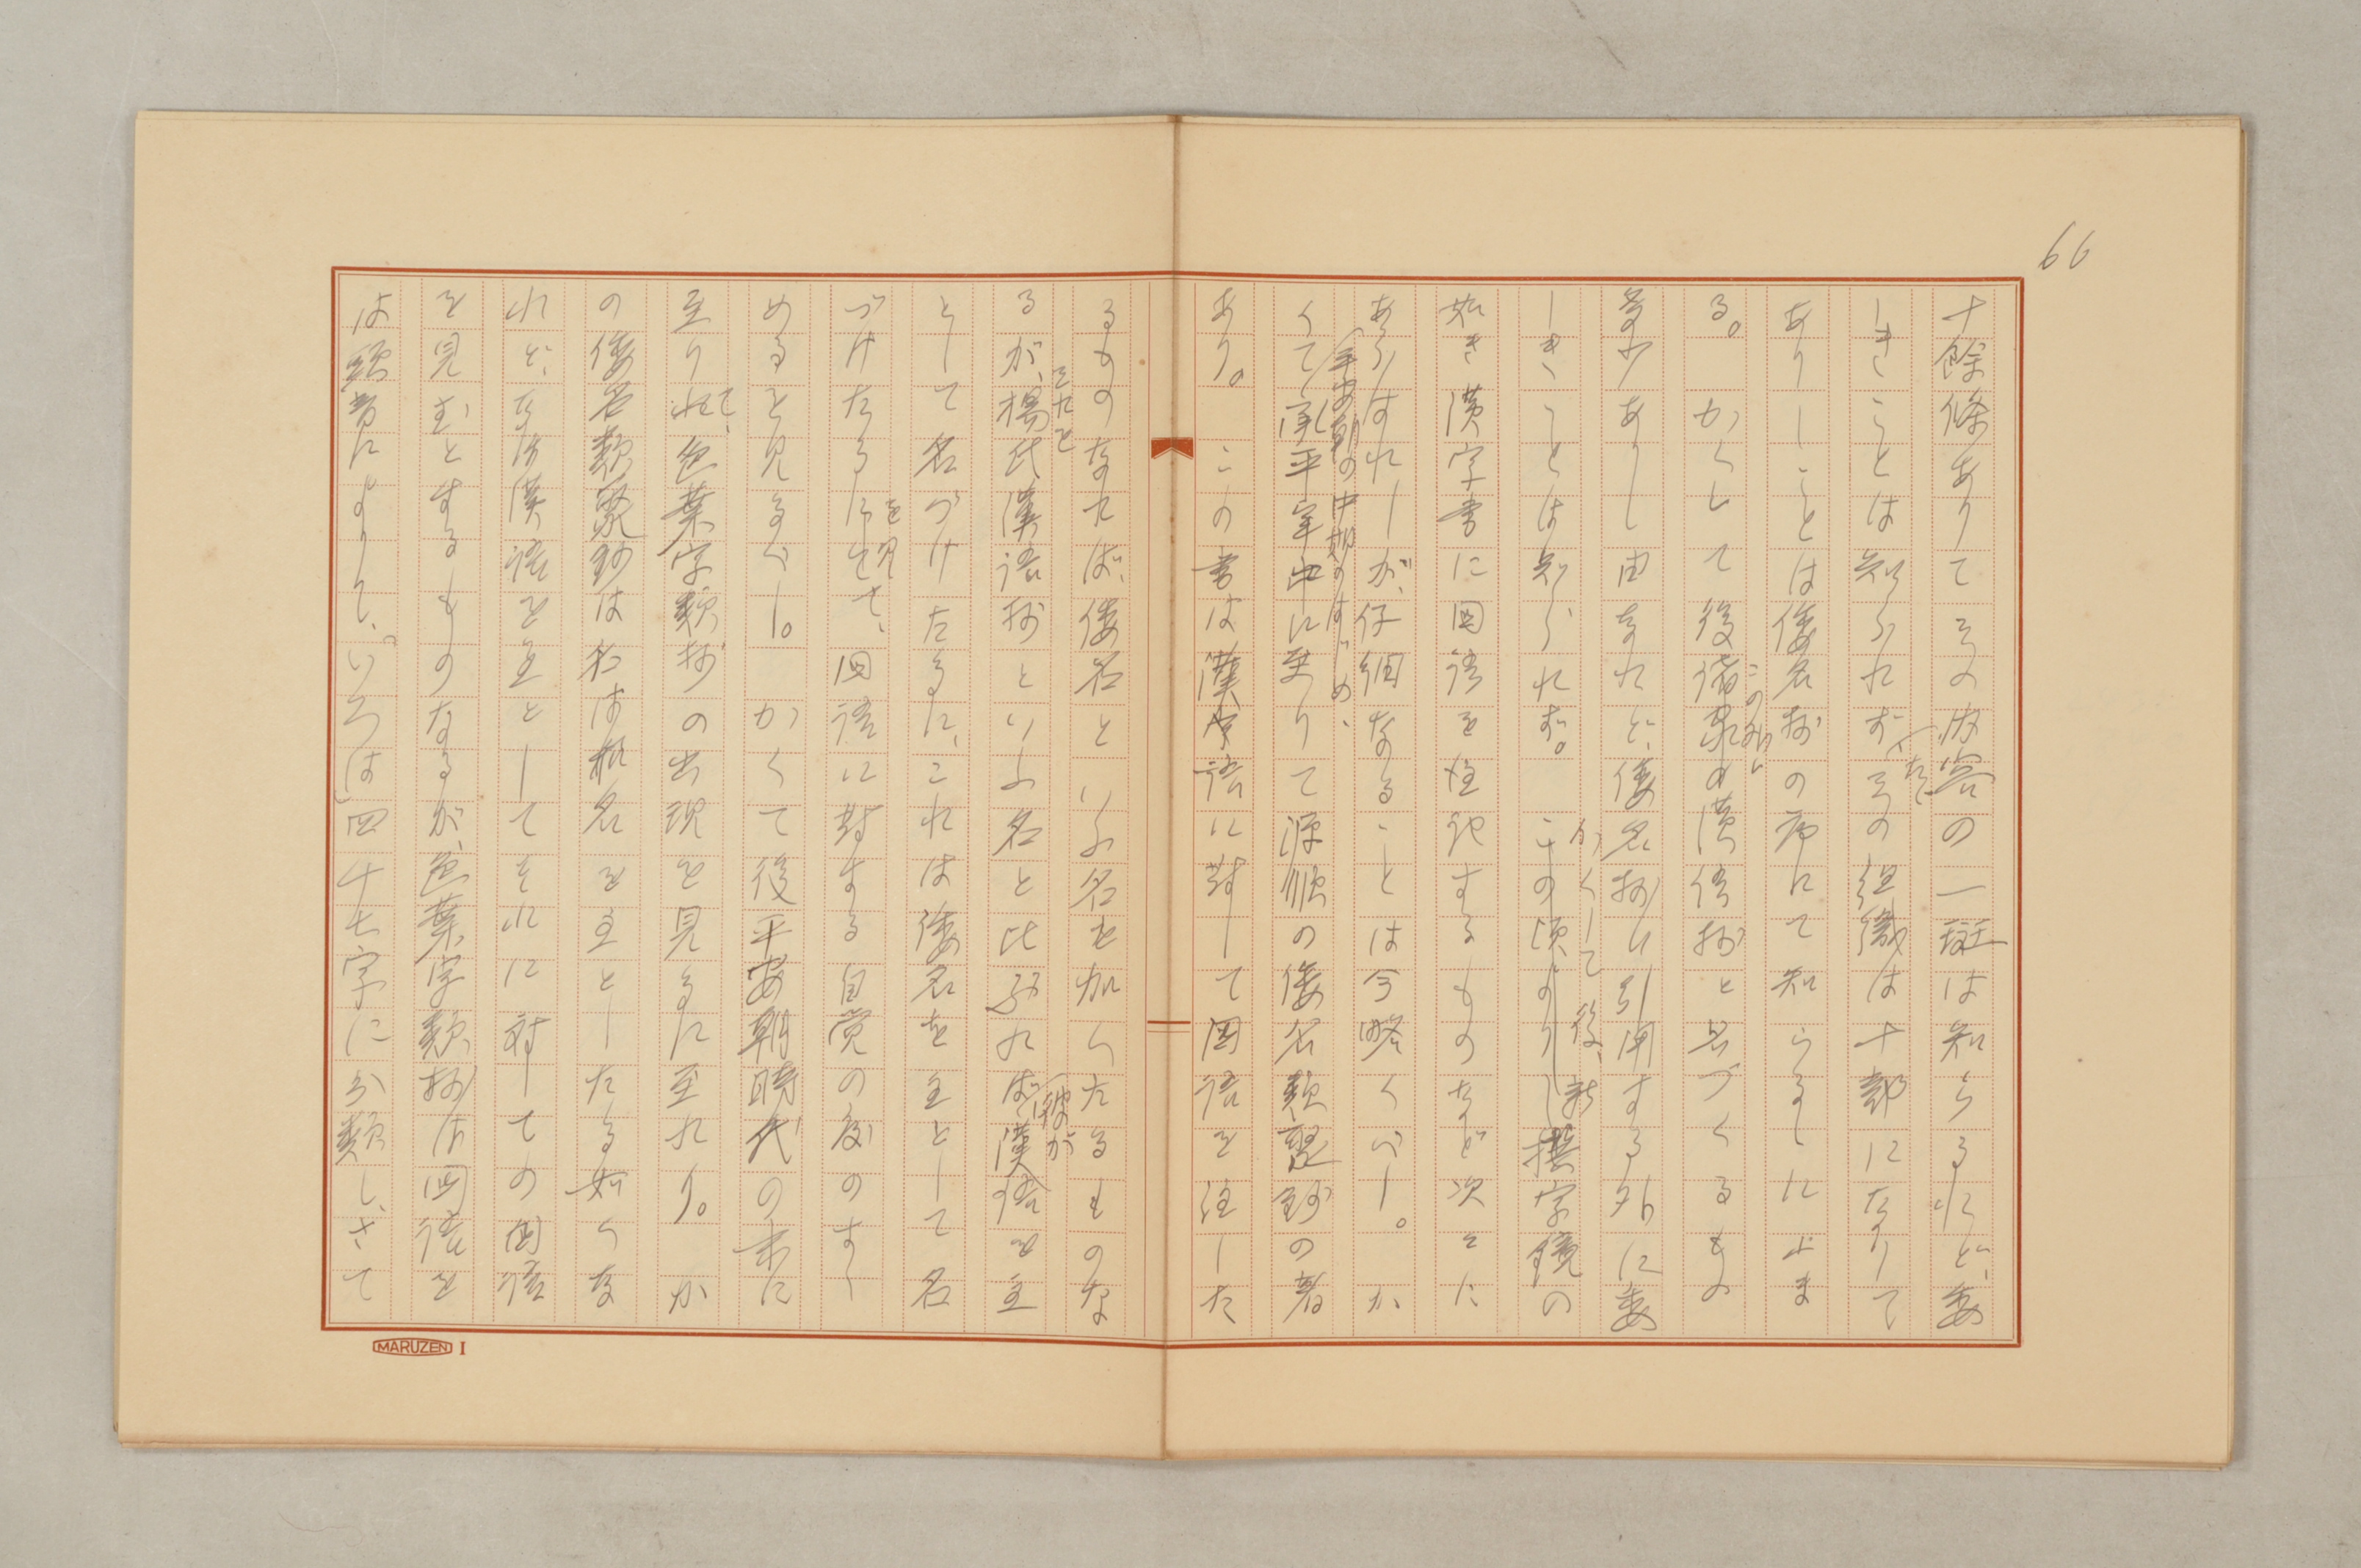 66
十餘條ありてその内容の一斑は知らるれど、委
しきことは知られず(たゞその組織は十部になりて
ありしことは倭名抄の序にて知らるゝに止ま
る。かくして後諸家の漢語抄と名づくるもの
このみ
多少ありし由なれど、倭名抄に引用する外に委
しきことは知られず。この頃より新撰字鏡の
かくして後、
如き漢字書に国語を注記するものなど次々に
あらはれしが、仔細なることは今略くべし。か
(平安朝の中期のはじめ、
くて承平年中に至りて源順の倭名類聚鈔の著
あり。この書は漢字語に對して国語を注した
るものなれば、倭名といふ名を加へたるものな
るが、それを楊氏漢語抄といふ名と比ぶれば(彼が漢語を主
として名づけたるに、これは倭名を主として名
づけたるを見て、国語に對する自覚の度のすゝ
めるを見るべし。かくて後平安朝時代の末に
至りて、色葉字類抄の出現を見るに至れり。か
の倭名類聚鈔は名は和名を主としたる如くな
れど、なほ漢語を主としてそれに対しての国語
を見むとするものなるが、色葉字類抄は国語を
は頭音によりて、いろは四十七字に分類し、さて
MARUZEN I